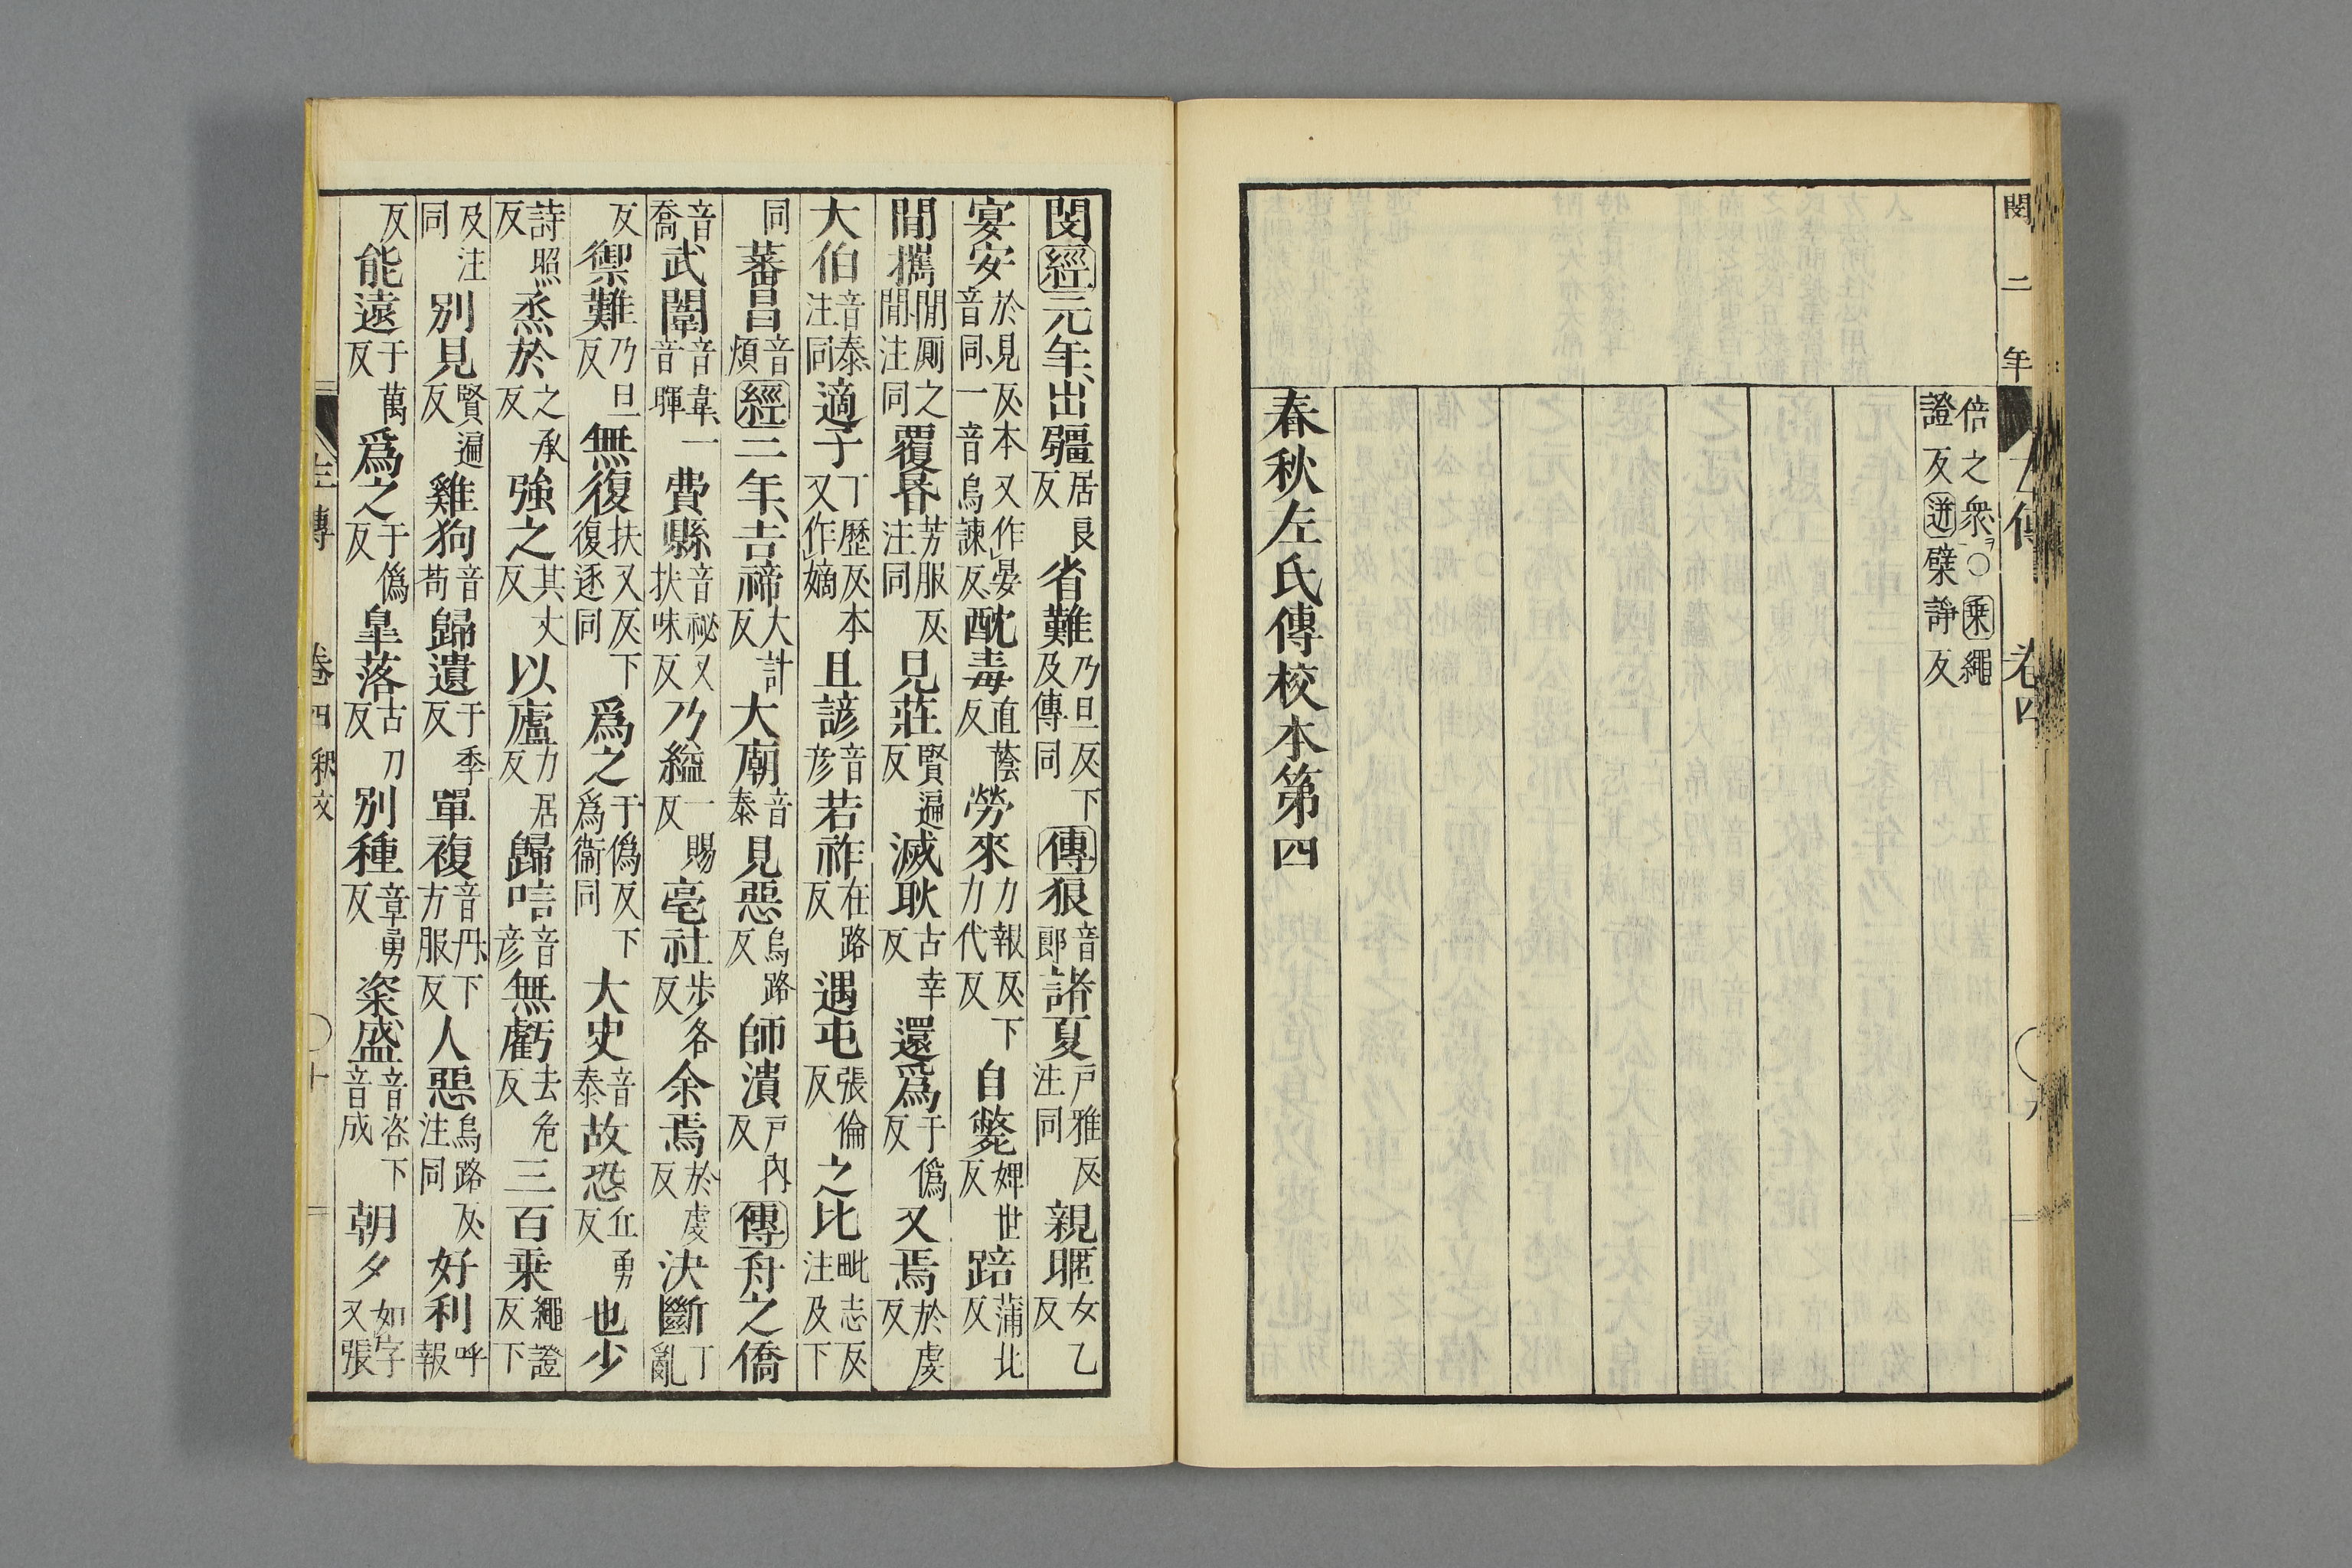 閔 二 年
左傳 卷四
倍之衆ヲ○乘繩
證反迸檗諍反
春秋左氏傳校本第四
閔經元年、出疆居良反省難乃旦反、下及傳同傳狼音郎諸夏戶雅反注同親暱女乙反
宴安於見反、本又作晏音同、一音烏諫反酖毒直蔭反勞來力報反、下力代反自斃婢世反踣蒲北反
閒攜閒厠之閒、注同覆昬芳服反注同見莊賢遍反滅耿古幸反還爲于僞反又焉於虔反
大伯音泰注同適子丁歷反、本又作嫡且諺音彦若祚在路反遇屯張倫反之比毗志反、注及下
同蕃昌音煩經二年、吉禘大計反大廟音泰見惡烏路反師潰戶內反傳舟之僑
音喬武闈音韋、一音暉費縣音祕又扶味反乃縊一賜反亳社步各反余焉於虔反決斷丁亂
反禦難乃旦反無復扶又反、下復逐同爲之于僞反、下爲衞同大史音泰故恐丘勇反也少
詩照反烝於之承反強之其丈反以廬力居反歸唁音彦無虧去危反三百乘繩證反下
及注同別見賢遍反雞狗音苟歸遺于季反單複音丹、下方服反人惡烏路反、注同好利呼報
反能遠于萬反爲之于僞反皐落古刀反別種章勇反粢盛音咨下音成朝夕如字又張
左傳 卷四 釈文 十